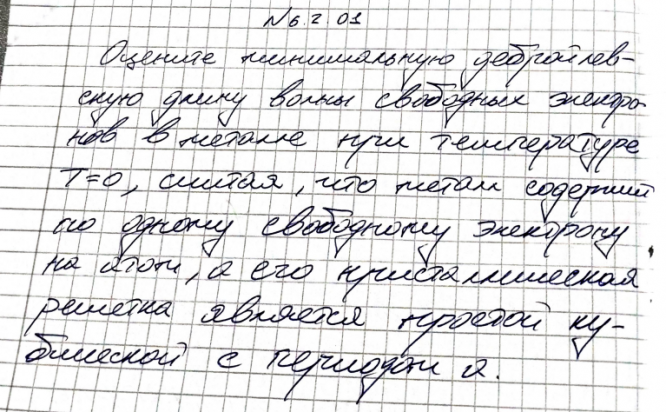 №6.2.01
Оцените минимальную дебройлев-
скую длину волны свободных электро-
нов в металле при температуре
T=0, считая, что металл содержит
по одному свободному электрону
на атом, а его кристаллическая
решетка является простой ку-
бической с периодом a.